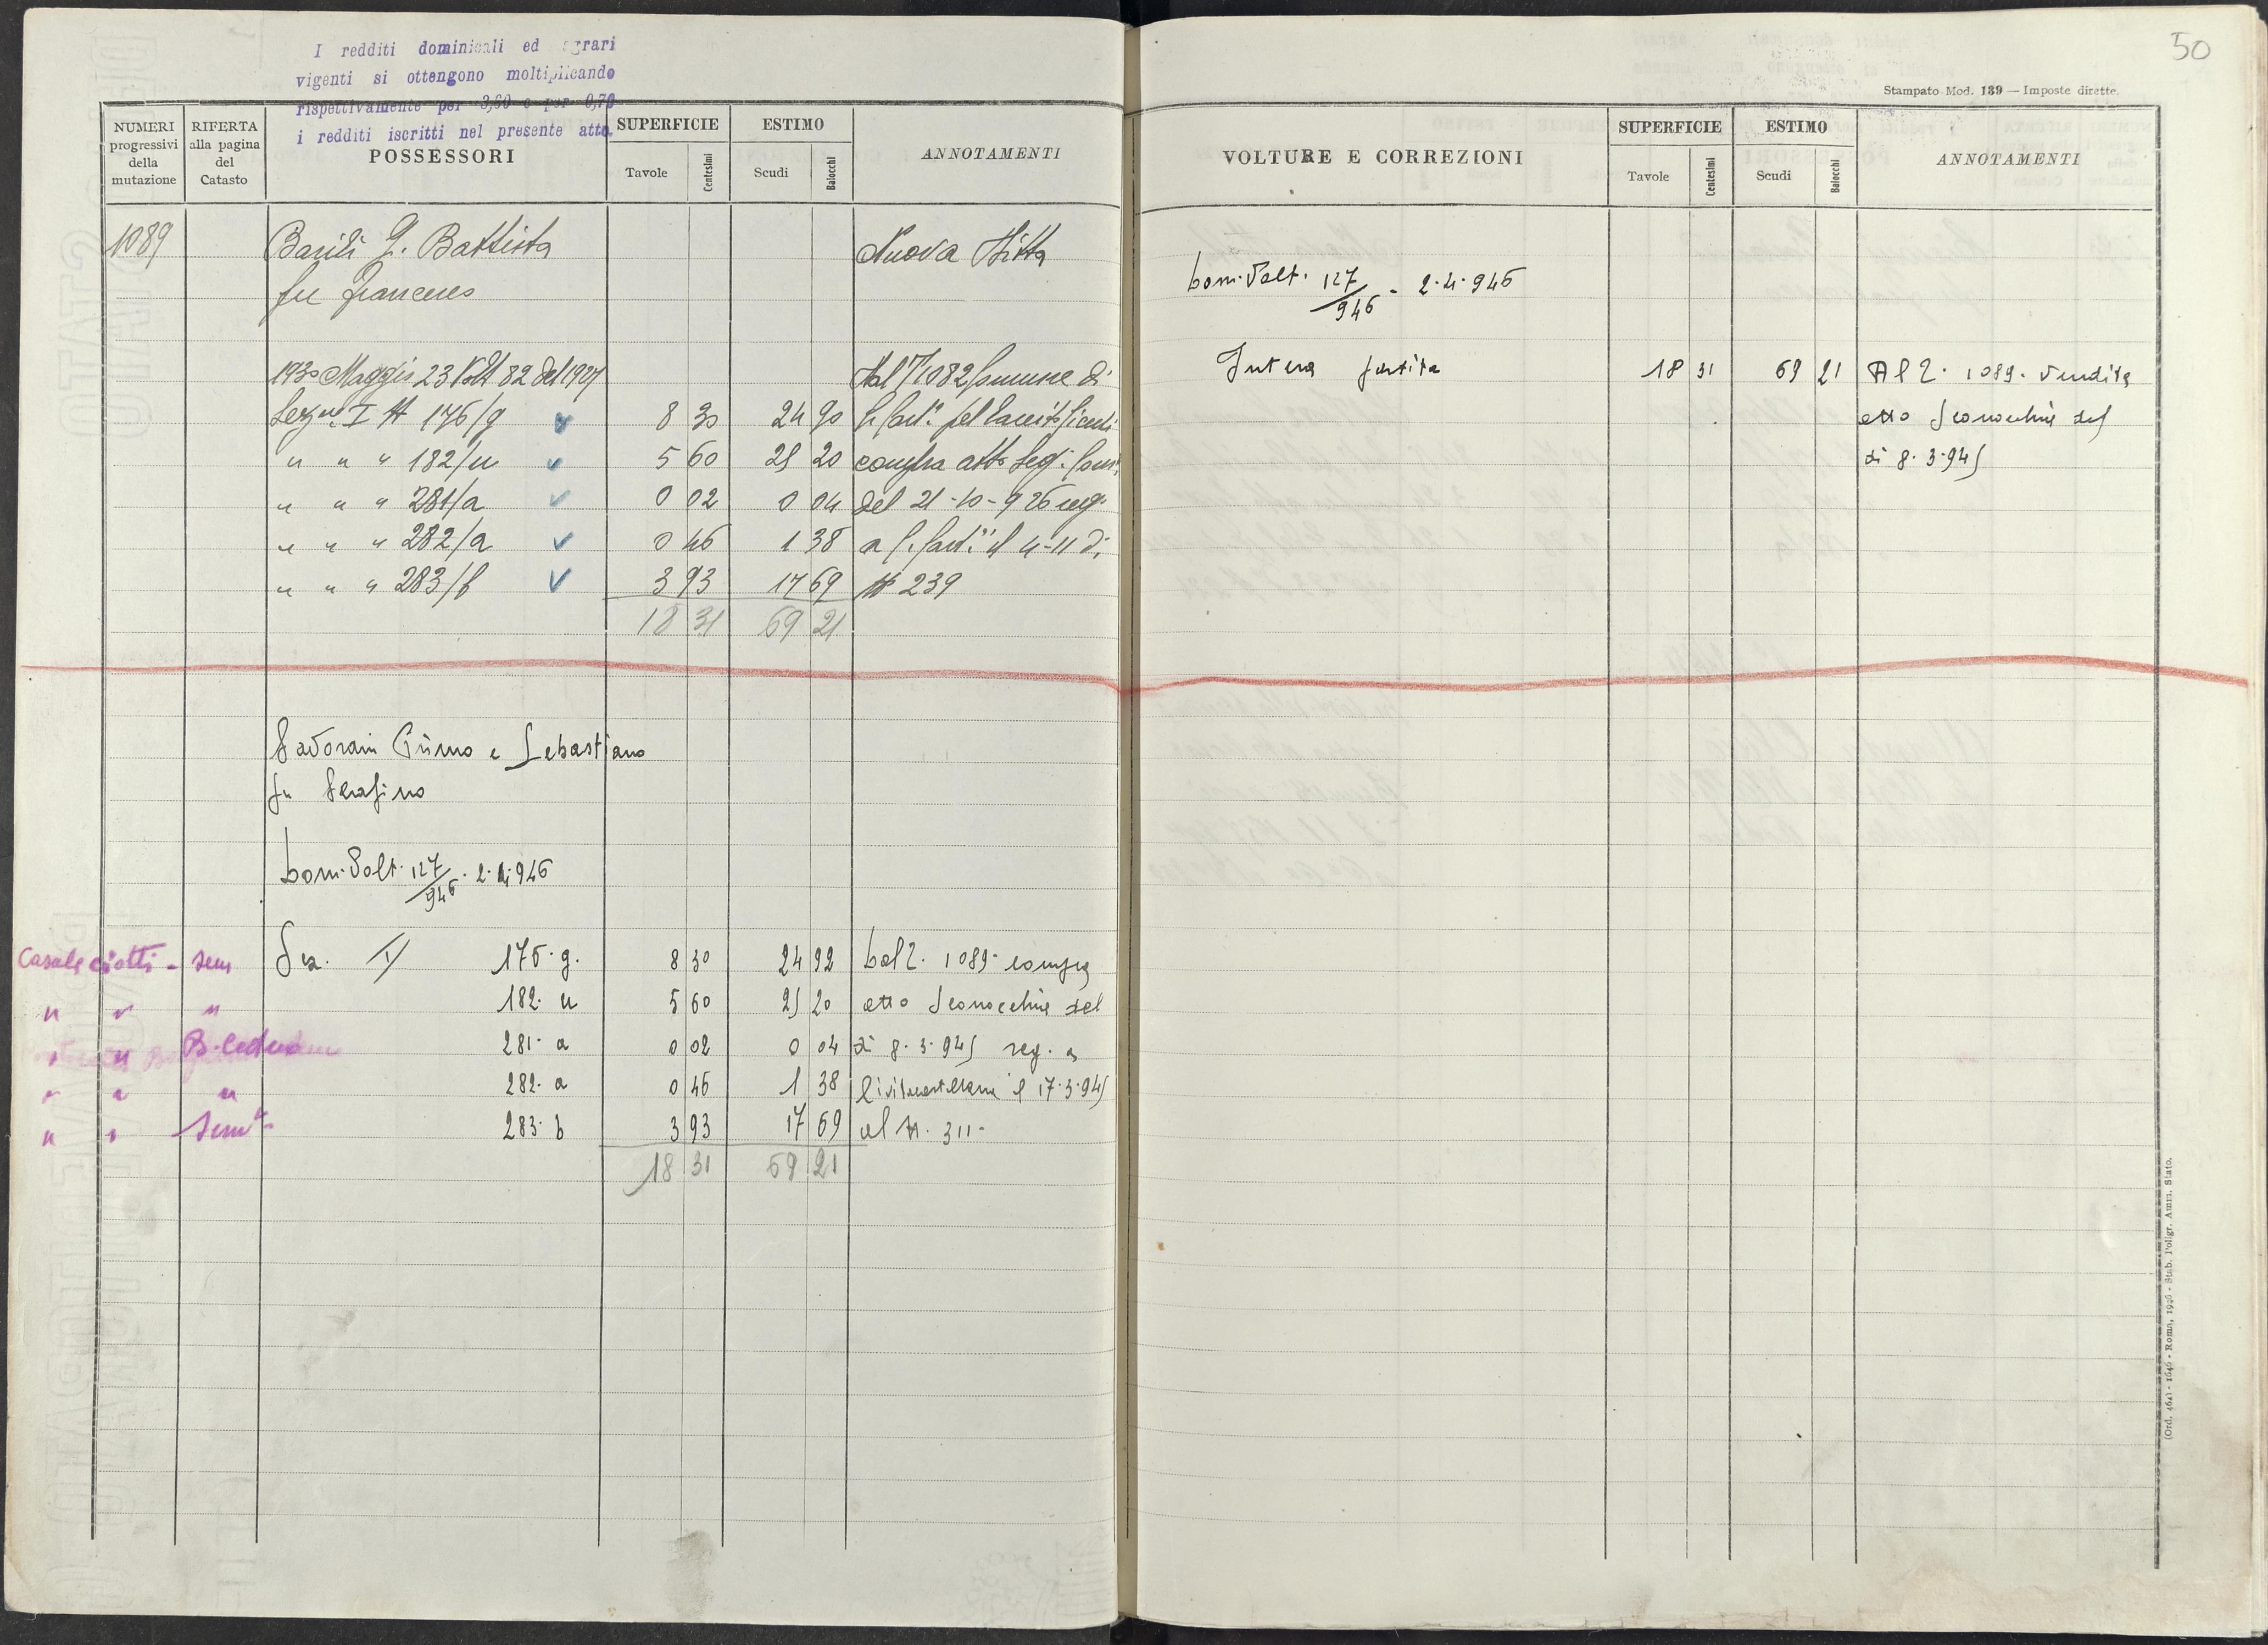 I redditi dominicali ed agrari
vigenti si ottengono moltiplicando
rispettivamente per 3,60 e per 0,70
i redditi iscritti nel presente atto.
NUMERI progressivi della mutazione
RIFERTA alla pagina del Catasto
POSSESSORI
SUPERFICIE
Tavole Centesimi
ESTIMO
Scudi Baiocchi
ANNOTAMENTI
1089 Basili G. Battista Nuova Ditta
fu
1930 Maggio 23 Volt 82 del 1927 Dal T/1082 Comune di
Sez. I N 176/g 8 30 24 90
" " " 182/u 5 60 25 20 compra atto Seg.
" " " 281/a 0 02 0 04 del 21-10-926 reg.
" " " 282/a 0 46 1 38 a il 4-11 di
" " " 283/b 3 93 17 69 N 239
18 31 69 21
Savorani Primo e Sebastiano
fu Serafino
Dom. Volt. 127/946 . 2.4.946
Casale ciotti - sem Sez. I 176. g. 8 30 24 92 Dal 1089. compra
" " " 182. u 5 60 25 20 atto Sconocchia del
" " B. ceduo 281. a 0 02 0 04 di 8.3.945 reg. a
" " " 282. a 0 46 1 38 Civitacastellana il 17.3.945
" " Semvo 283. b 3 93 17 69 al N. 311-
18 31 69 21
50
Stampato Mod. 139 — Imposte dirette.
VOLTURE E CORREZIONI
SUPERFICIE
Tavole Centesimi
ESTIMO
Scudi Baiocchi
ANNOTAMENTI
Dom. Volt. 127/946 - 2.4.946
Intera partita 18 31 69 21 Al 1089. Vendita
atto Sconocchia del
di 8.3.945
(Ord. 4641 - 1646 - Roma, 1926 - Stab. Poligr. Amm. Stato.